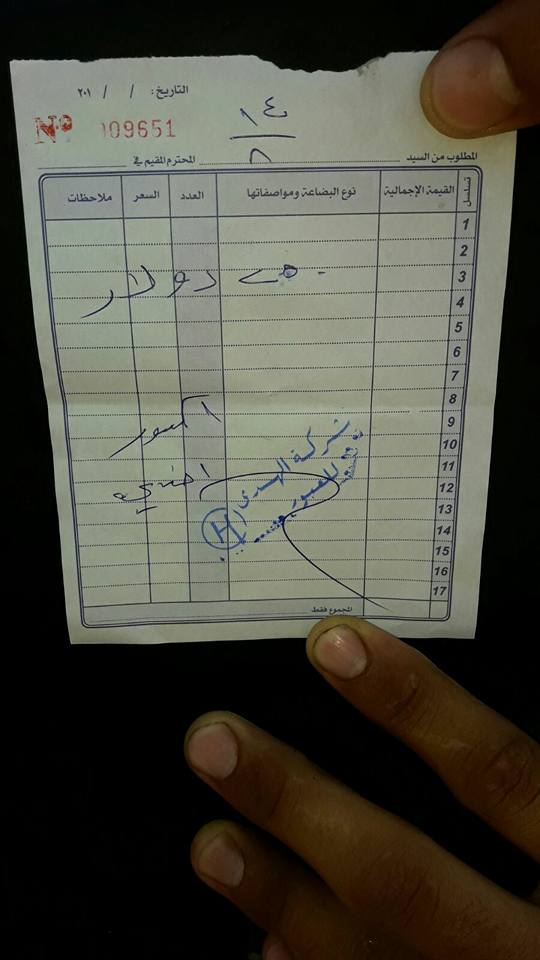 التاريخ: / / ٢٠١
Nº 009651
١٤
٨
المطلوب من السيد المحترم المقيم في
تسلسل القيمة الإجمالية نوع البضاعة ومواصفاتها العدد السعر ملاحظات
1
2
3
دولار
4
5
6
7
8
9
10
11
12
13
14
15
16
17
شركة الهدى
H
المجموع فقط